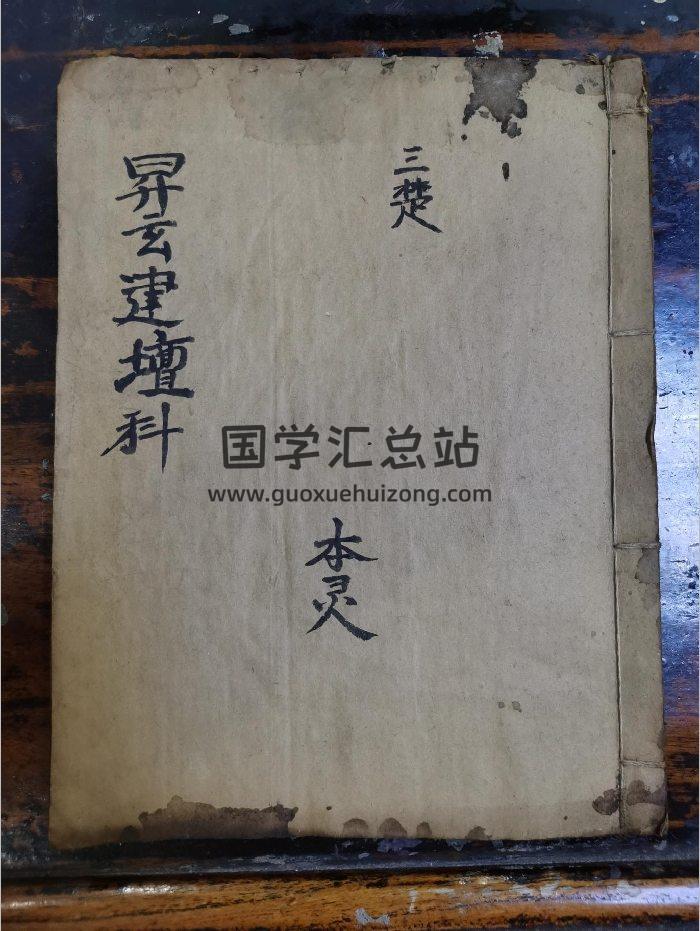 三楚
本灵
昇玄建壇科
国学汇总站
www.guoxuehuizong.com